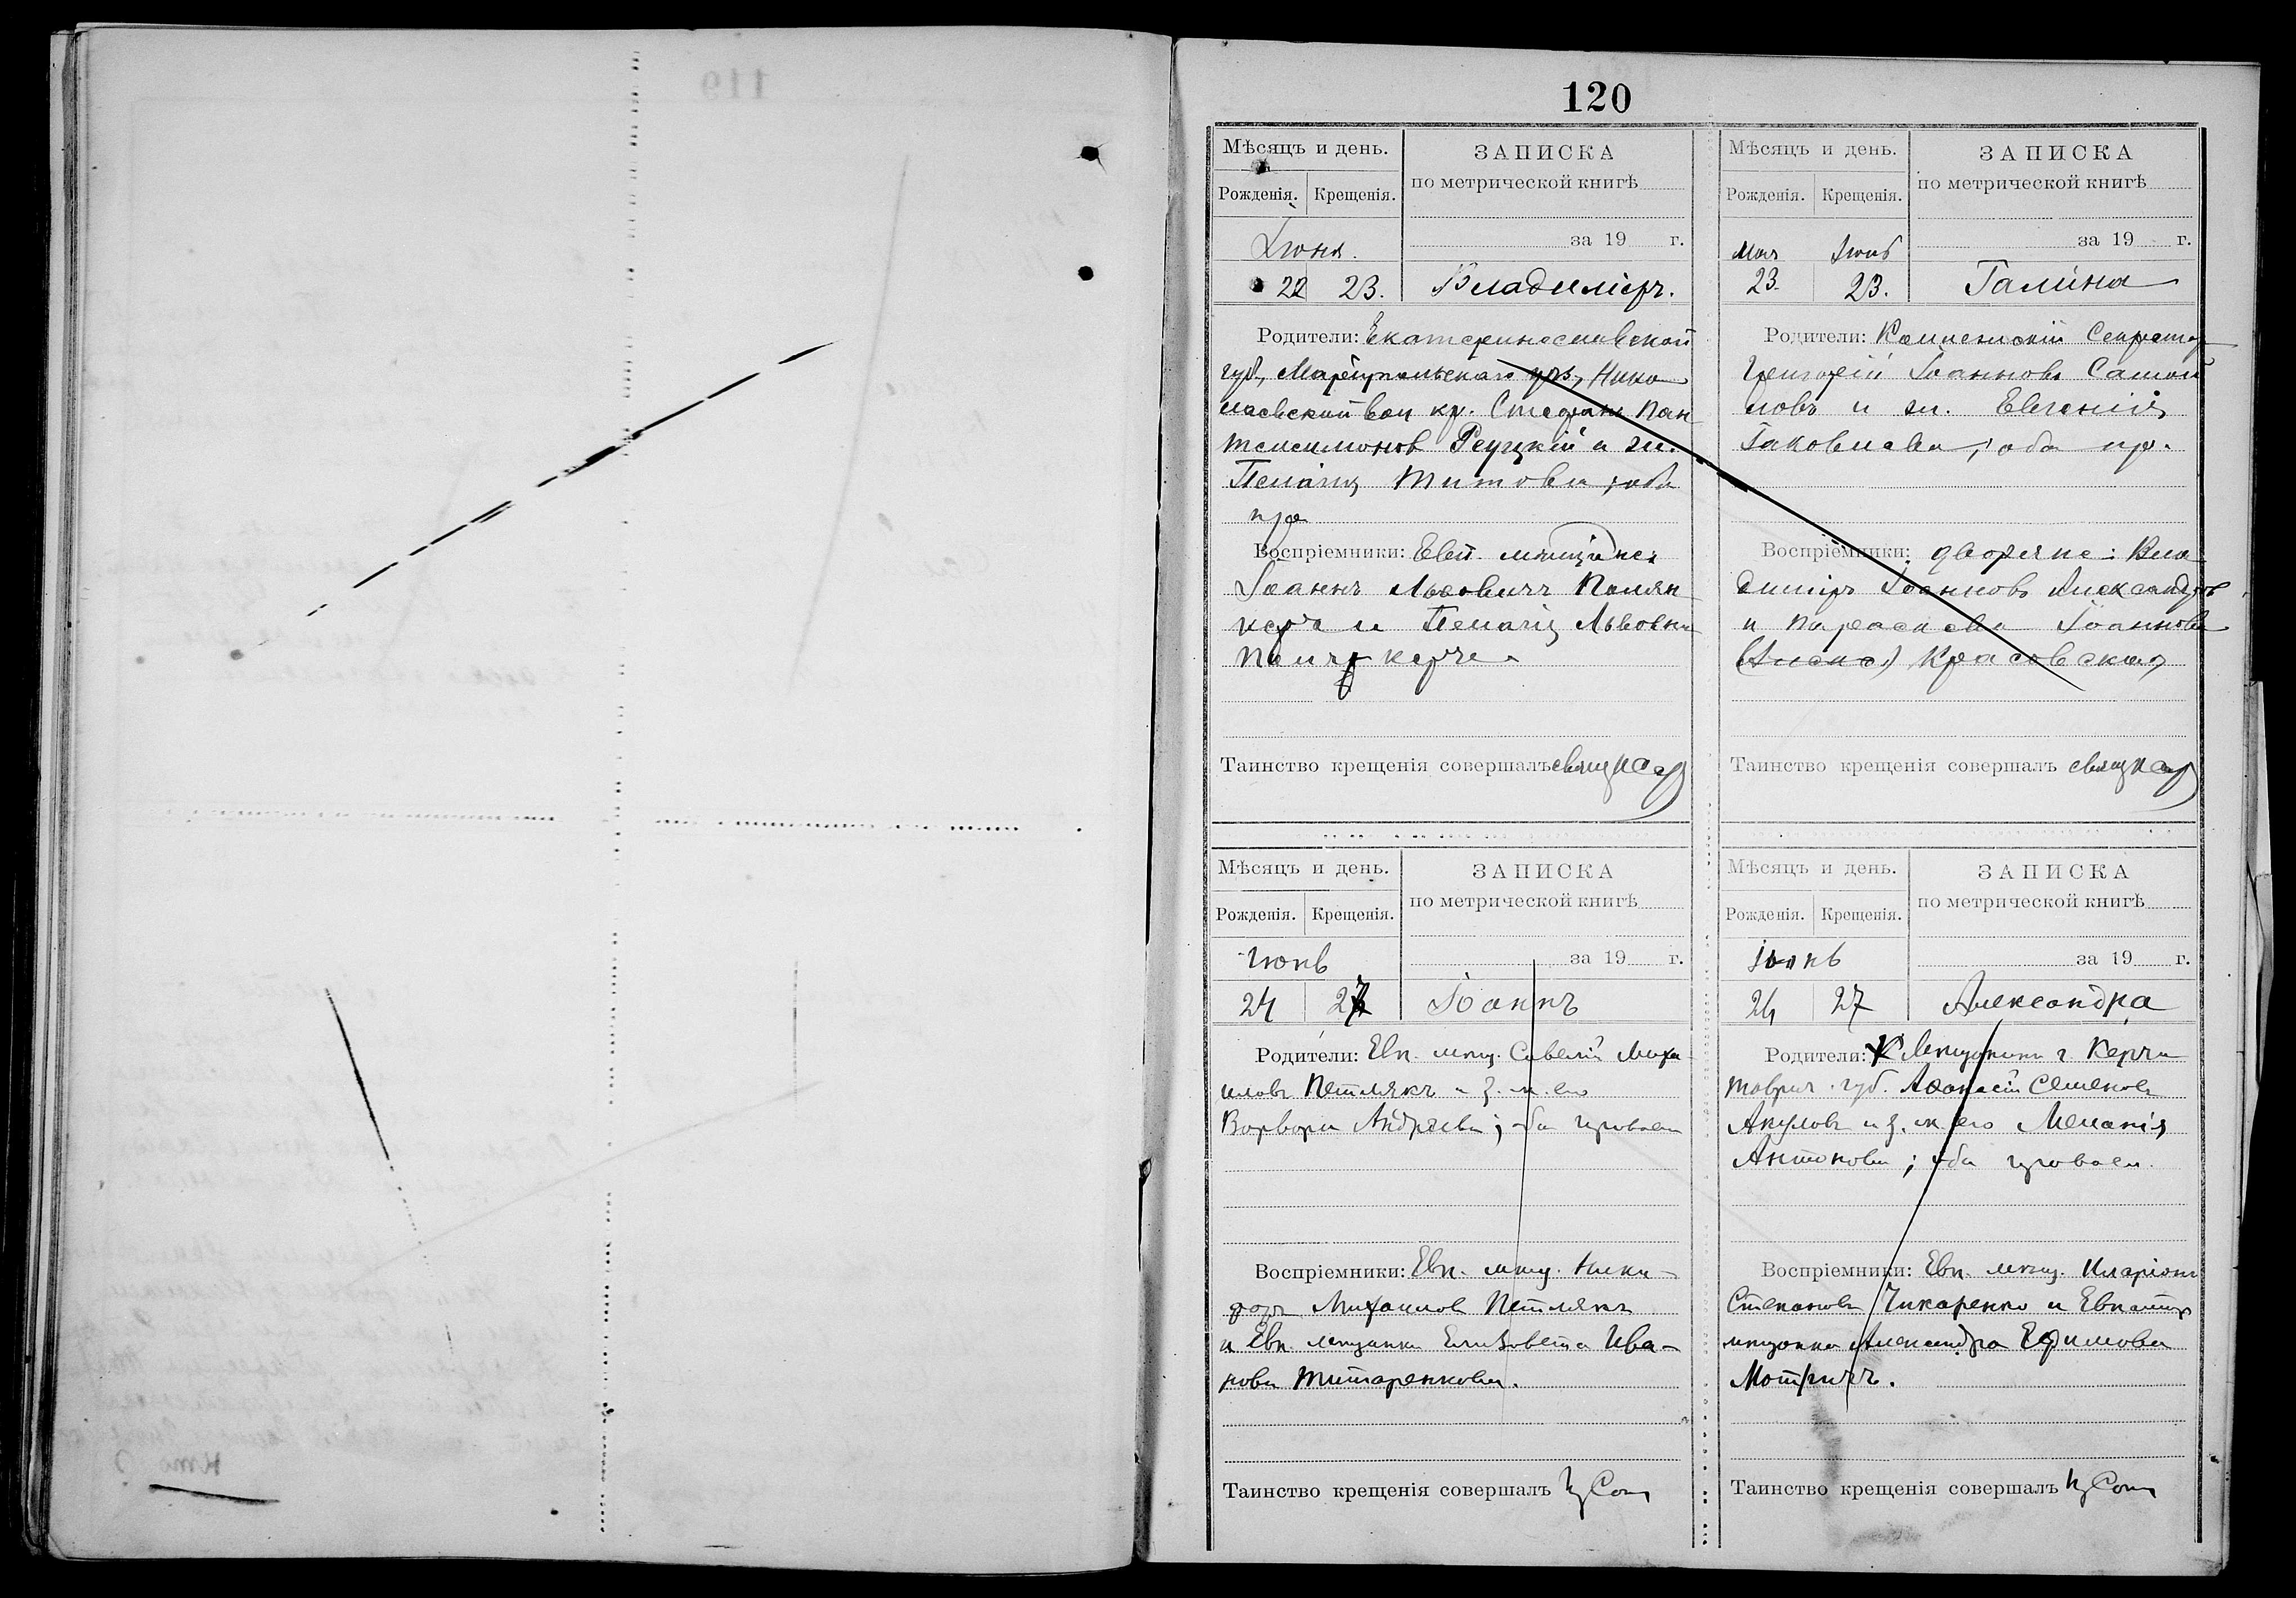 120
Мѣсяцъ и день.
Рожденія. Крещенія.
ЗАПИСКА
по метрической книгѣ
за 19 г.
Іюня.
22 23. Владиміръ.
Родители: Екатеринославской
губ., Маріупольскаго уѣз, Нико
лаевской вол кр. Стефанъ Пан
телеимонов Реуцкій и зж.
Пелагія Титова, оба
пр.
Воспріемники: Евп. мѣщане:
Іоаннъ Львовичъ
и Пелагія Львовна
Таинство крещенія совершалъ свящ
Мѣсяцъ и день.
Рожденія. Крещенія.
ЗАПИСКА
по метрической книгѣ
за 19 г.
Мая Іюнь
23. 23. Галина
Родители: Коллежскій Секретар
Григорій Іоанновъ Самой
ловъ и зж. Евгенія
Іаковлева, оба пр.
Воспріемники: дворяне: Вла
диміръ Іоанновъ Александров
и Параскева Іоаннова
Красовская
Таинство крещенія совершалъ свящ
Мѣсяцъ и день.
Рожденія. Крещенія.
ЗАПИСКА
по метрической книгѣ
за 19 г.
Июнь
24 27 Іоаннъ
Родители: Евп. мѣщ. Савелій Миха
иловъ Петлякъ и з. ж. его
Варвара Андреева; оба правосл
Воспріемники: Евп. мѣщ. Ники-
форъ Михаилов Петлякъ
и Евп. мѣщанка Елизавета Ива-
нова Титаренкова.
Таинство крещенія совершалъ
Мѣсяцъ и день.
Рожденія. Крещенія.
ЗАПИСКА
по метрической книгѣ
за 19 г.
Іюнь
24 27 Александра
Родители: Мѣщанинъ г Керчи
Таврич. губ. Аѳанасій Семенов
Акулов и з. ж. его Меланія
Антонова; оба правосл.
Воспріемники: Евп. мѣщ. Иларіонъ
Степановъ Чикаренко и Евпатор
мѣщанка Александра Ефимова
Мотричъ.
Таинство крещенія совершалъ